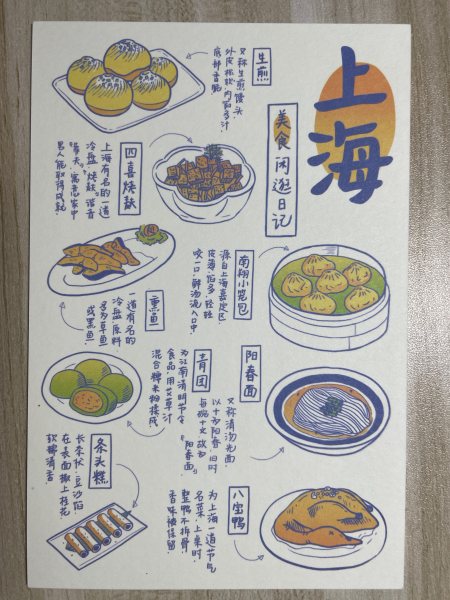 上海
美食闲逛日记
生煎
又称生煎馒头
外皮松软,内多汁,
底部香脆
四喜烤麸
上海有名的一道
冷盘,烤麸,谐音
"靠夫",寓意家中
男人能取得成就.
南翔小笼包
源自上海嘉定区
皮薄馅多,轻轻
咬一口,鲜汤流入口中.
熏鱼
一道有名的
冷盘,原料
多为草鱼
或黑鱼.
阳春面
又称清汤光面,
以十为阳春,旧时
每碗十文故为
「阳春面」
青团
为江南清明节令
食品,用艾草汁
混合粳米粉揉成
条头糕
长条状,豆沙馅
在表面撒上桂花
软糯清香
八宝鸭
为上海一道节气
名菜,上桌时
整鸭不拆骨
香味被保留.